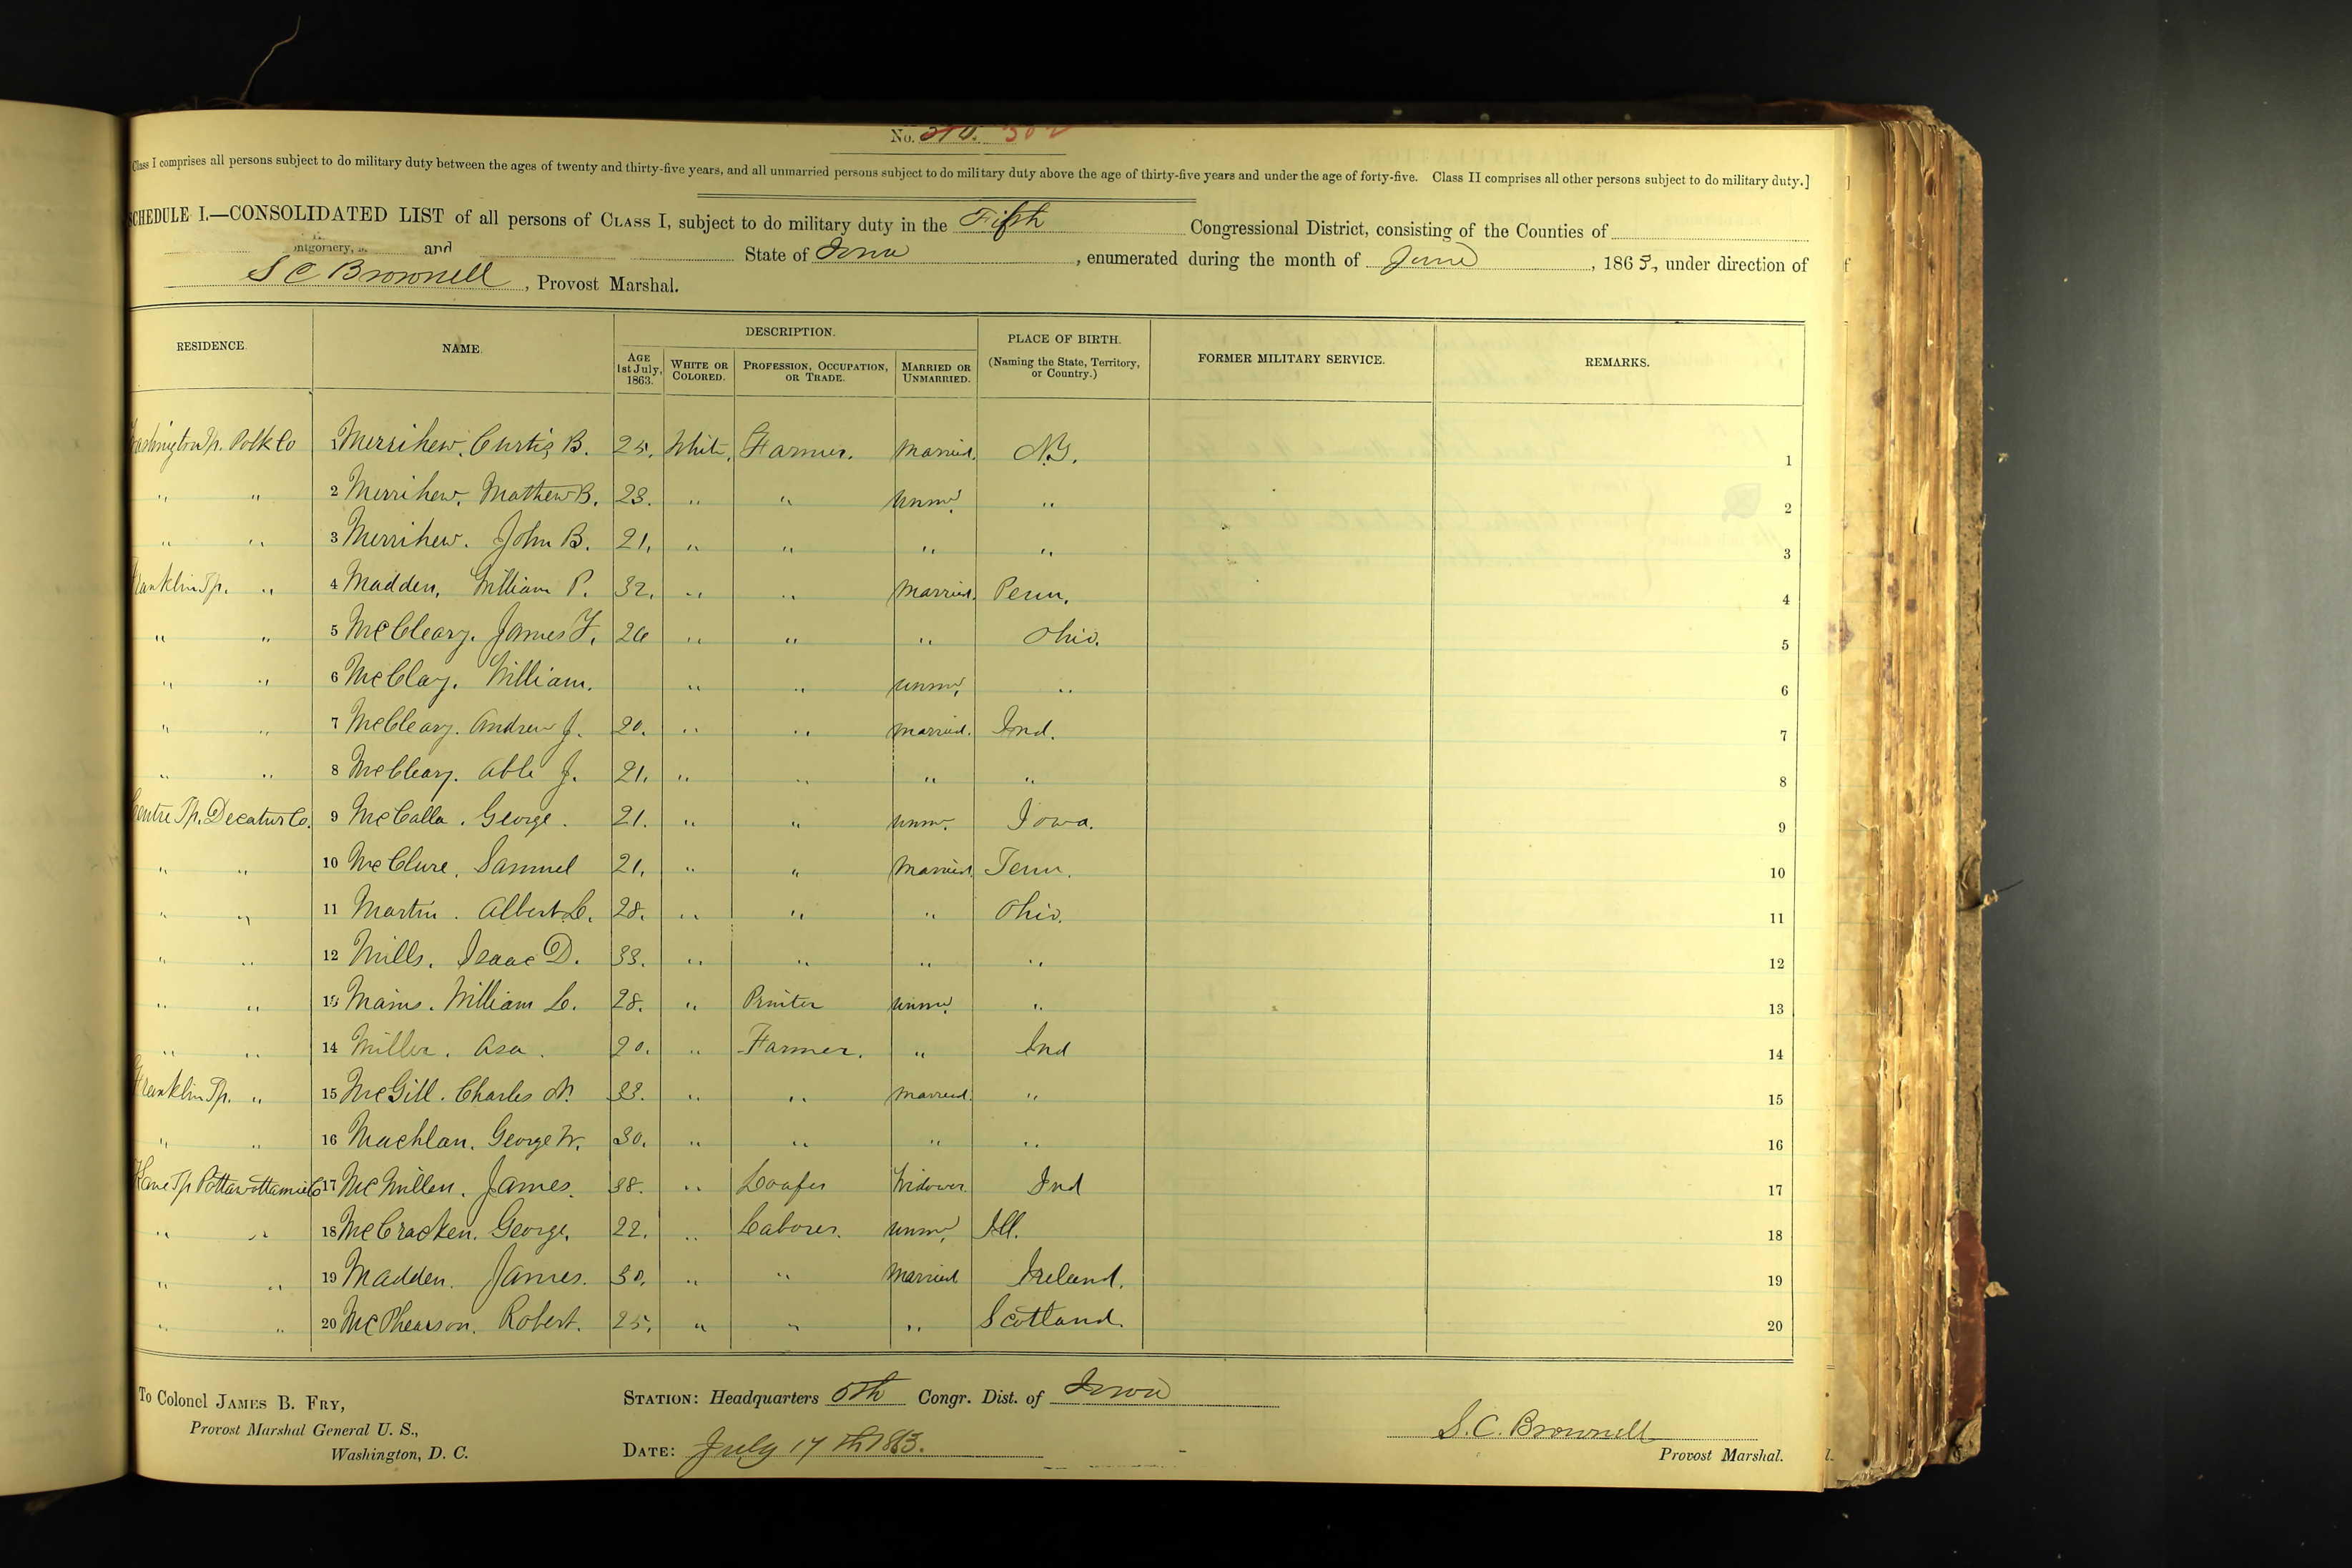 No. 302
Class I comprises all persons subject to do military duty between the ages of twenty and thirty-five years, and all unmarried persons subject to do military duty above the age of thirty-five years and under the age of forty-five. Class II comprises all other persons subject to do military duty.]
SCHEDULE I.—CONSOLIDATED LIST of all persons of CLASS I, subject to do military duty in the Fifth Congressional District, consisting of the Counties of
and State of Iowa, enumerated during the month of June, 1863, under direction of
S C Brownell, Provost Marshal.
RESIDENCE. NAME. DESCRIPTION. PLACE OF BIRTH. (Naming the State, Territory, or Country.) FORMER MILITARY SERVICE. REMARKS.
AGE 1st July, 1863. WHITE OR COLORED. PROFESSION, OCCUPATION, OR TRADE. MARRIED OR UNMARRIED.
Washington Tp. Polk Co 1 Merrihew, Curtis B. 25. White, Farmer. Married. N.Y. 1
" " 2 Merrihew, Mathew B. 23. " " Unmd. " 2
" " 3 Merrihew. John B. 21, " " " " 3
Franklin Tp. " 4 Madden, William P. 32. " " Married. Penn. 4
" " 5 McCleary. James F. 26 " " " Ohio. 5
" " 6 McClay. William. " " Unmd, " 6
" " 7 McCleary. Andrew J. 20. " " Married. Ind. 7
" " 8 McCleary. Able J. 21, " " " " 8
Centre Tp. Decatur Co. 9 McCalla. George. 21. " " Unm. Iowa. 9
" " 10 McClure, Samuel 21, " " Married. Tenn. 10
" " 11 Martin. Albert L. 28. " " " Ohio. 11
" " 12 Mills, Isaac D. 33. " " " " 12
" " 13 Mains. William L. 28. " Printer Unmd. " 13
" " 14 Miller. Asa. 20. " Farmer. " Ind 14
Franklin Tp. " 15 McGill. Charles N. 33. " " Married. " 15
" " 16 Machlan. George W. 30. " " " " 16
Kane Tp Pottawattamie Co 17 McMillen, James. 38. " Loafer Widower. Ind 17
" " 18 McCracken. George. 22. " Laborer. Unmd, Ill. 18
" " 19 Madden. James. 30. " " Married Ireland. 19
" " 20 McPhearson. Robert. 25. " " " Scotland. 20
To Colonel JAMES B. FRY,
Provost Marshal General U. S.,
Washington, D. C.
STATION: Headquarters 5th Congr. Dist. of Iowa
DATE: July 17th 1863.
S. C. Brownell
Provost Marshal.